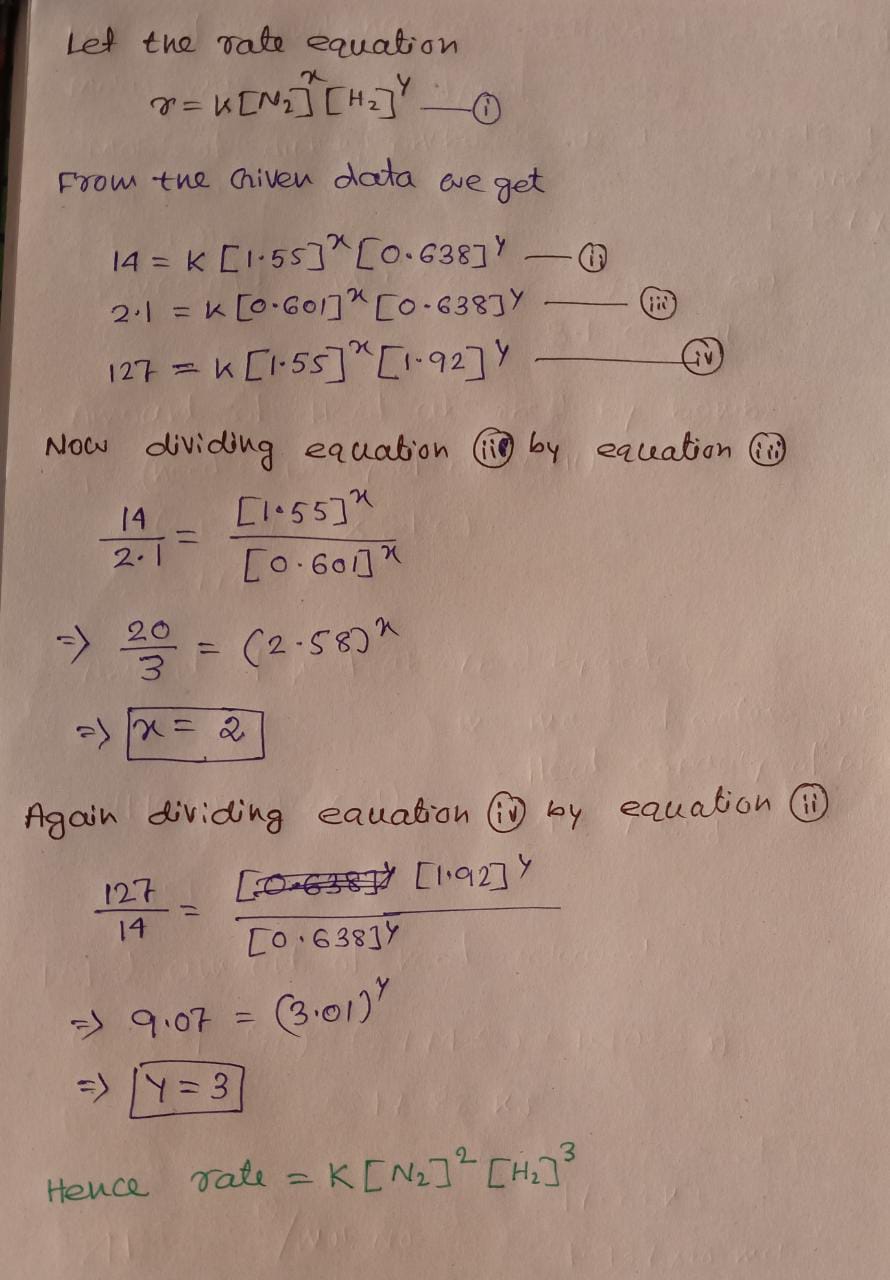 Let the rate equation
r = K[N₂]ˣ [H₂]ʸ — (i)
From the Given data we get
14 = K [1.55]ˣ [0.638]ʸ — (ii)
2.1 = K [0.601]ˣ [0.638]ʸ — (iii)
127 = K [1.55]ˣ [1.92]ʸ — (iv)
Now dividing equation (ii) by equation (iii)
14/2.1 = [1.55]ˣ/[0.601]ˣ
=> 20/3 = (2.58)ˣ
=> x = 2
Again dividing equation (iv) by equation (ii)
127/14 = [1.92]ʸ/[0.638]ʸ
=> 9.07 = (3.01)ʸ
=> Y = 3
Hence rate = K [N₂]² [H₂]³